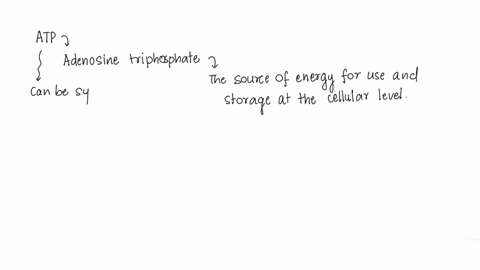 ATP
Adenosine triphosphate
The source of energy for use and
storage at the cellular level.
Can be sy